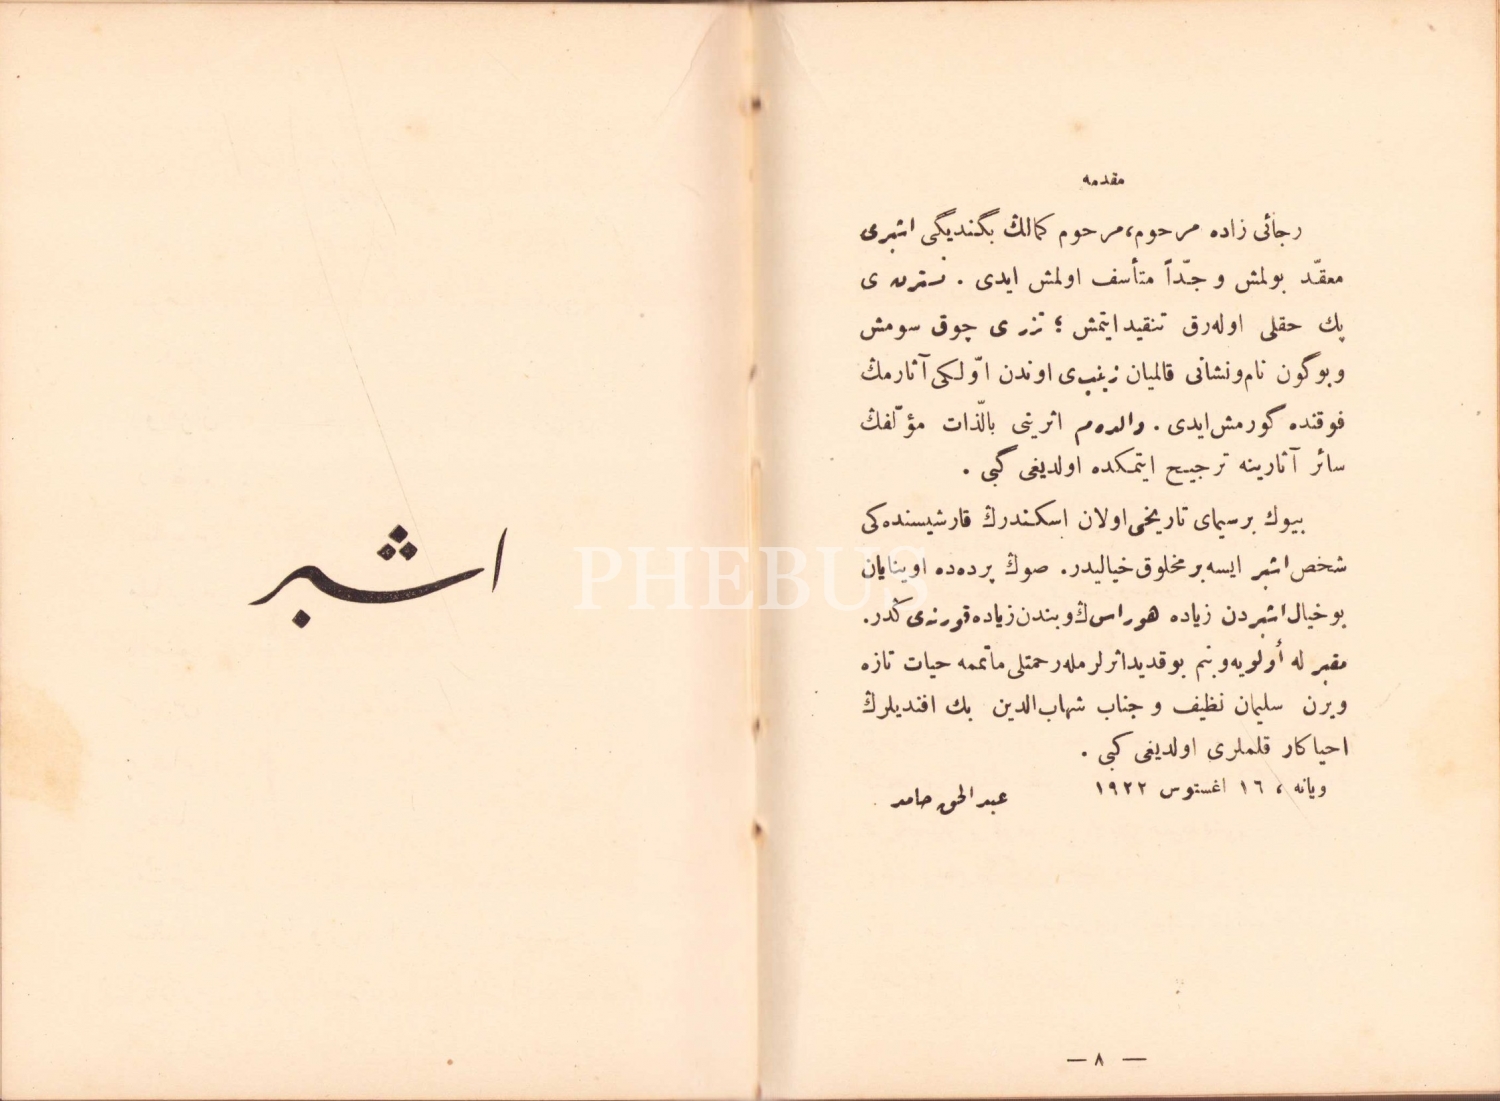 مقدمه
رجائی زاده مرحوم، مرحوم كمالڭ بگندیگی اشبری
معقّد بولمش و جدّاً متأسف اولمش ایدی . نسترن ی
پك حقلی اوله‌رق تنقید ایتمش ؛ تزر ی چوق سومش
و بوگون نام ونشانی قالمیان زینب ی اوندن اوّلكی آثارمڭ
فوقنده گورمش ایدی . والده‌م اثرینی بالذّات مؤلّفڭ
سائر آثارینه ترجیح ایتمكده اولدیغی گبی .
بیوك بر سیمای تاریخی اولان اسكندرڭ قارشیسنده كی
شخص اشبر ایسه بر مخلوق خیالیدر. صوڭ پرده‌ده اوینایان
بو خیال اشبردن زیاده هوراس ڭ و بندن زیاده قورنه‌ی ڭدر.
مقبر له أولویه و بنم بو قدید اثرلرمله رحمتلی ماتممه حیات تازه
ویرن سلیمان نظیف و جناب شهاب‌الدین بك افندیلرڭ
احیاكار قلملری اولدیغی گبی .
ویانه ، ١٦ اغستوس ١٩٢٢
عبد الحق حامد
— ٨ —
اشبر
PHEBUS